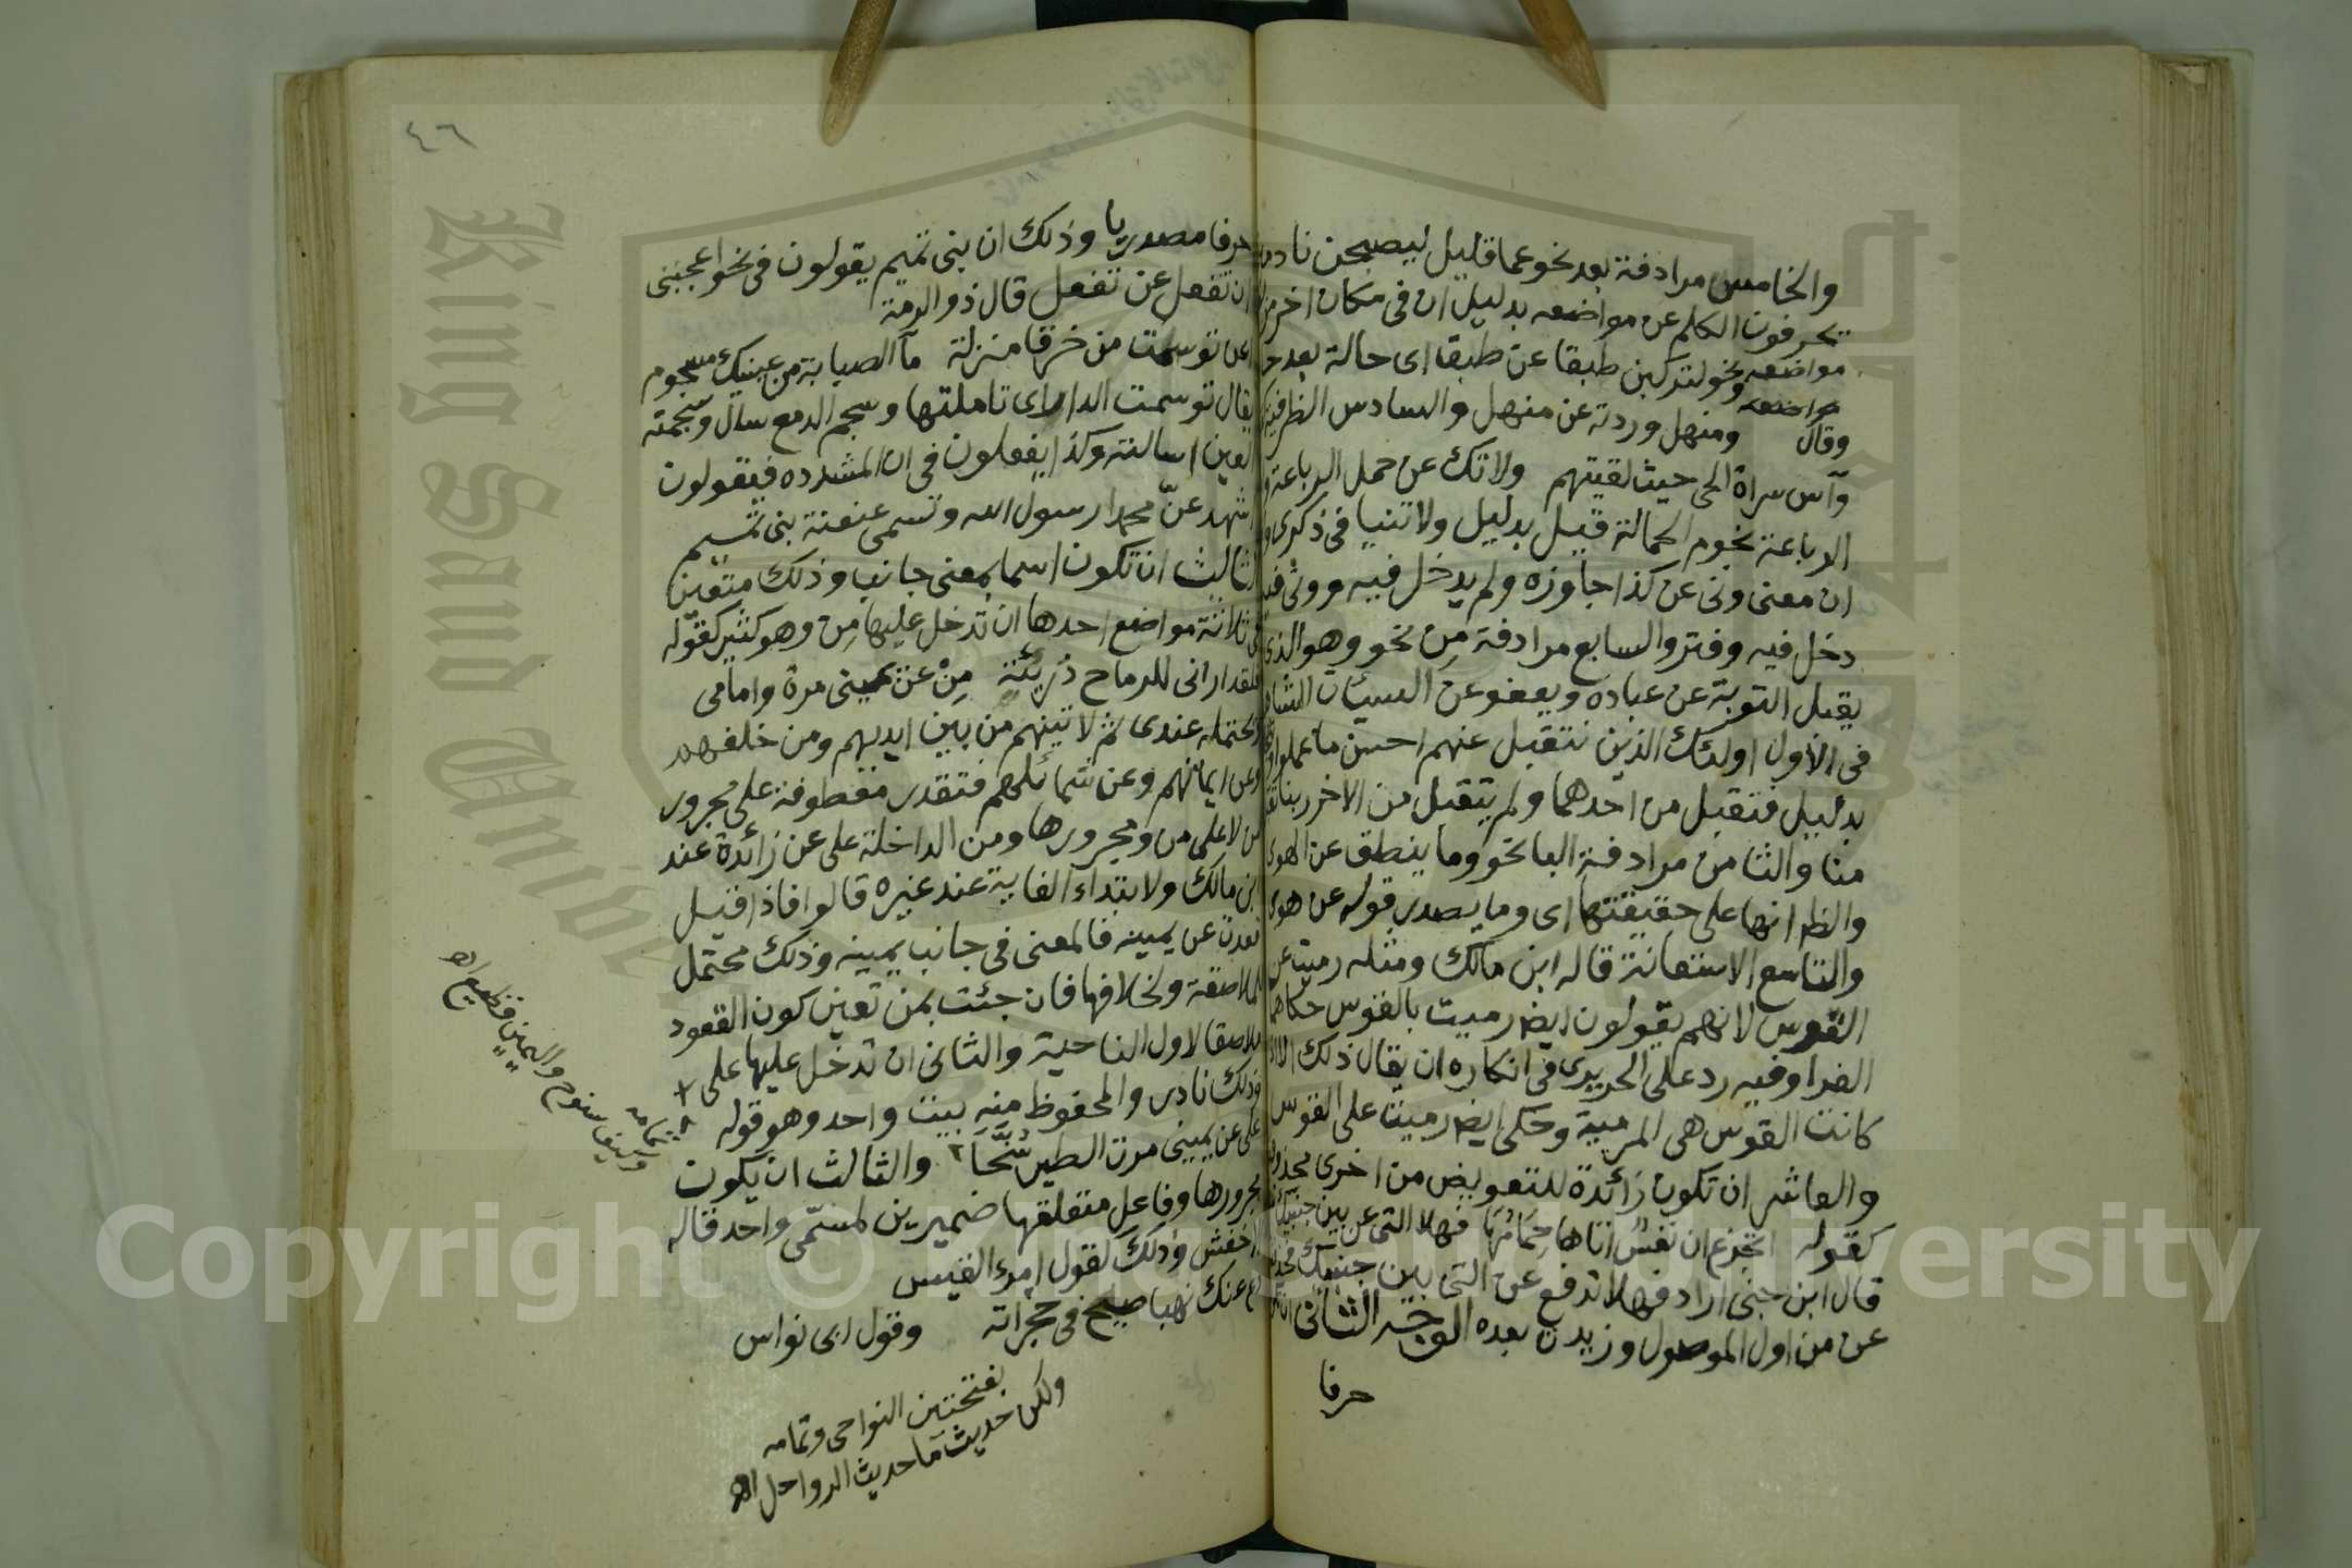 والخامس مرادفة بعد نحو عما قليل ليصبحن نادمين
يحرفون الكلم عن مواضعه بدليل ان في مكان اخر من
مواضعه ونحو لتركبن طبقا عن طبقا اى حالة بعد
مواضعه
وقال ومنهل وردته عن منهل والسادس الظرفية
وآس سراة الحى حيث لقيتهم ولا تك عن حمل الرباعة
الرباعة نجوم الحمالة قيل بدليل ولا تنيا في ذكرى
ان معنى ونى عن كذا جاوزه ولم يدخل فيه وونى
دخل فيه وفتر والسابع مرادفة مِن نحو وهو الذى
يقبل التوبة عن عباده ويعفو عن السيئات الشاهد
في الاول اولئك الذين نتقبل عنهم احسن ما عملوا
بدليل فتقبل من احدهما ولم يتقبل من الاخر ربنا تقبل
منا والثامن مرادفة البا نحو وما ينطق عن الهوى
والظ انها على حقيقتها اى وما يصدر قوله عن هوى
والتاسع الاستعانة قاله ابن مالك ومثله رميت عن
القوس لانهم يقولون ايض رميت بالقوس حكاهما
الفرا وفيه رد على الحريرى في انكاره ان يقال ذلك الا اذا
كانت القوس هى المرمية وحكى ايض رميت على القوس
والعاشر ان تكون زائدة للتعويض من اخرى محذوفة
كقوله اتجزع ان نفسٌ اتاها حِمَامُهَا فهلا التى عن بين جنبيك
قال ابن جنى اراد فهلا تدفع عن التى بين جنبيك
عن من اول الموصول وزيدت بعده الوجه الثانى ان
حرفا
٤٦
حرفا مصدريا وذلك ان بنى تميم يقولون في نحو اعجبنى
ان تفعل عن تفعل قال ذو الرمة
اعن توسمت من خرقا منزلة مآ الصبابة من عينيك مسجوم
يقال توسمت الدار اى تاملتها وسجم الدمع سال وسجمته
العين اسالته وكذا يفعلون في ان المشدده فيقولون
اشهد عنّ محمدا رسول الله وتسمى عنعنة بنى تميم
الثالث ان تكون اسما بمعنى جانب وذلك متعين
في ثلاثة مواضع احدها ان تدخل عليها مِن وهو كثير كقوله
فلقد ارانى للرماح دُرِيئَةٍ مِنْ عَن يمينى مرة وامامى
ويحتمله عندى ثم لاتينهم من بين ايديهم ومن خلفهم
وعن ايمانهم وعن شمائلهم فتقدر معطوفة على مجرور
من لا على من ومجرورها ومن الداخلة على عن زائدة عند
ابن مالك ولابتداء الغاية عند غيره قالوا فاذا قيل
قعدت عن يمينه فالمعنى في جانب يمينه وذلك محتمل
للملاصقة ولخلافها فان جئت بمن تعين كون القعود
ملاصقا لاول الناحية والثانى ان تدخل عليها على
وذلك نادر والمحفوظ منه بيت واحد وهو قوله
على عن يمينى مرت الطير سُنَّحَا ٢ والثالث ان يكون
مجرورها وفاعل متعلقها ضميرين لمسمّى واحد قاله
الاخفش وذلك كقول امرء القيس
دع عنك نهبا صيح في حجراته وقول ابى نواس
بفتحتين النواحى وتمامه
ولكن حديث ما حديث الرواحل اهـ
تمامه
وكيف سنوح واليمين قطيع اهـ
King Saud University
Copyright © King Saud University